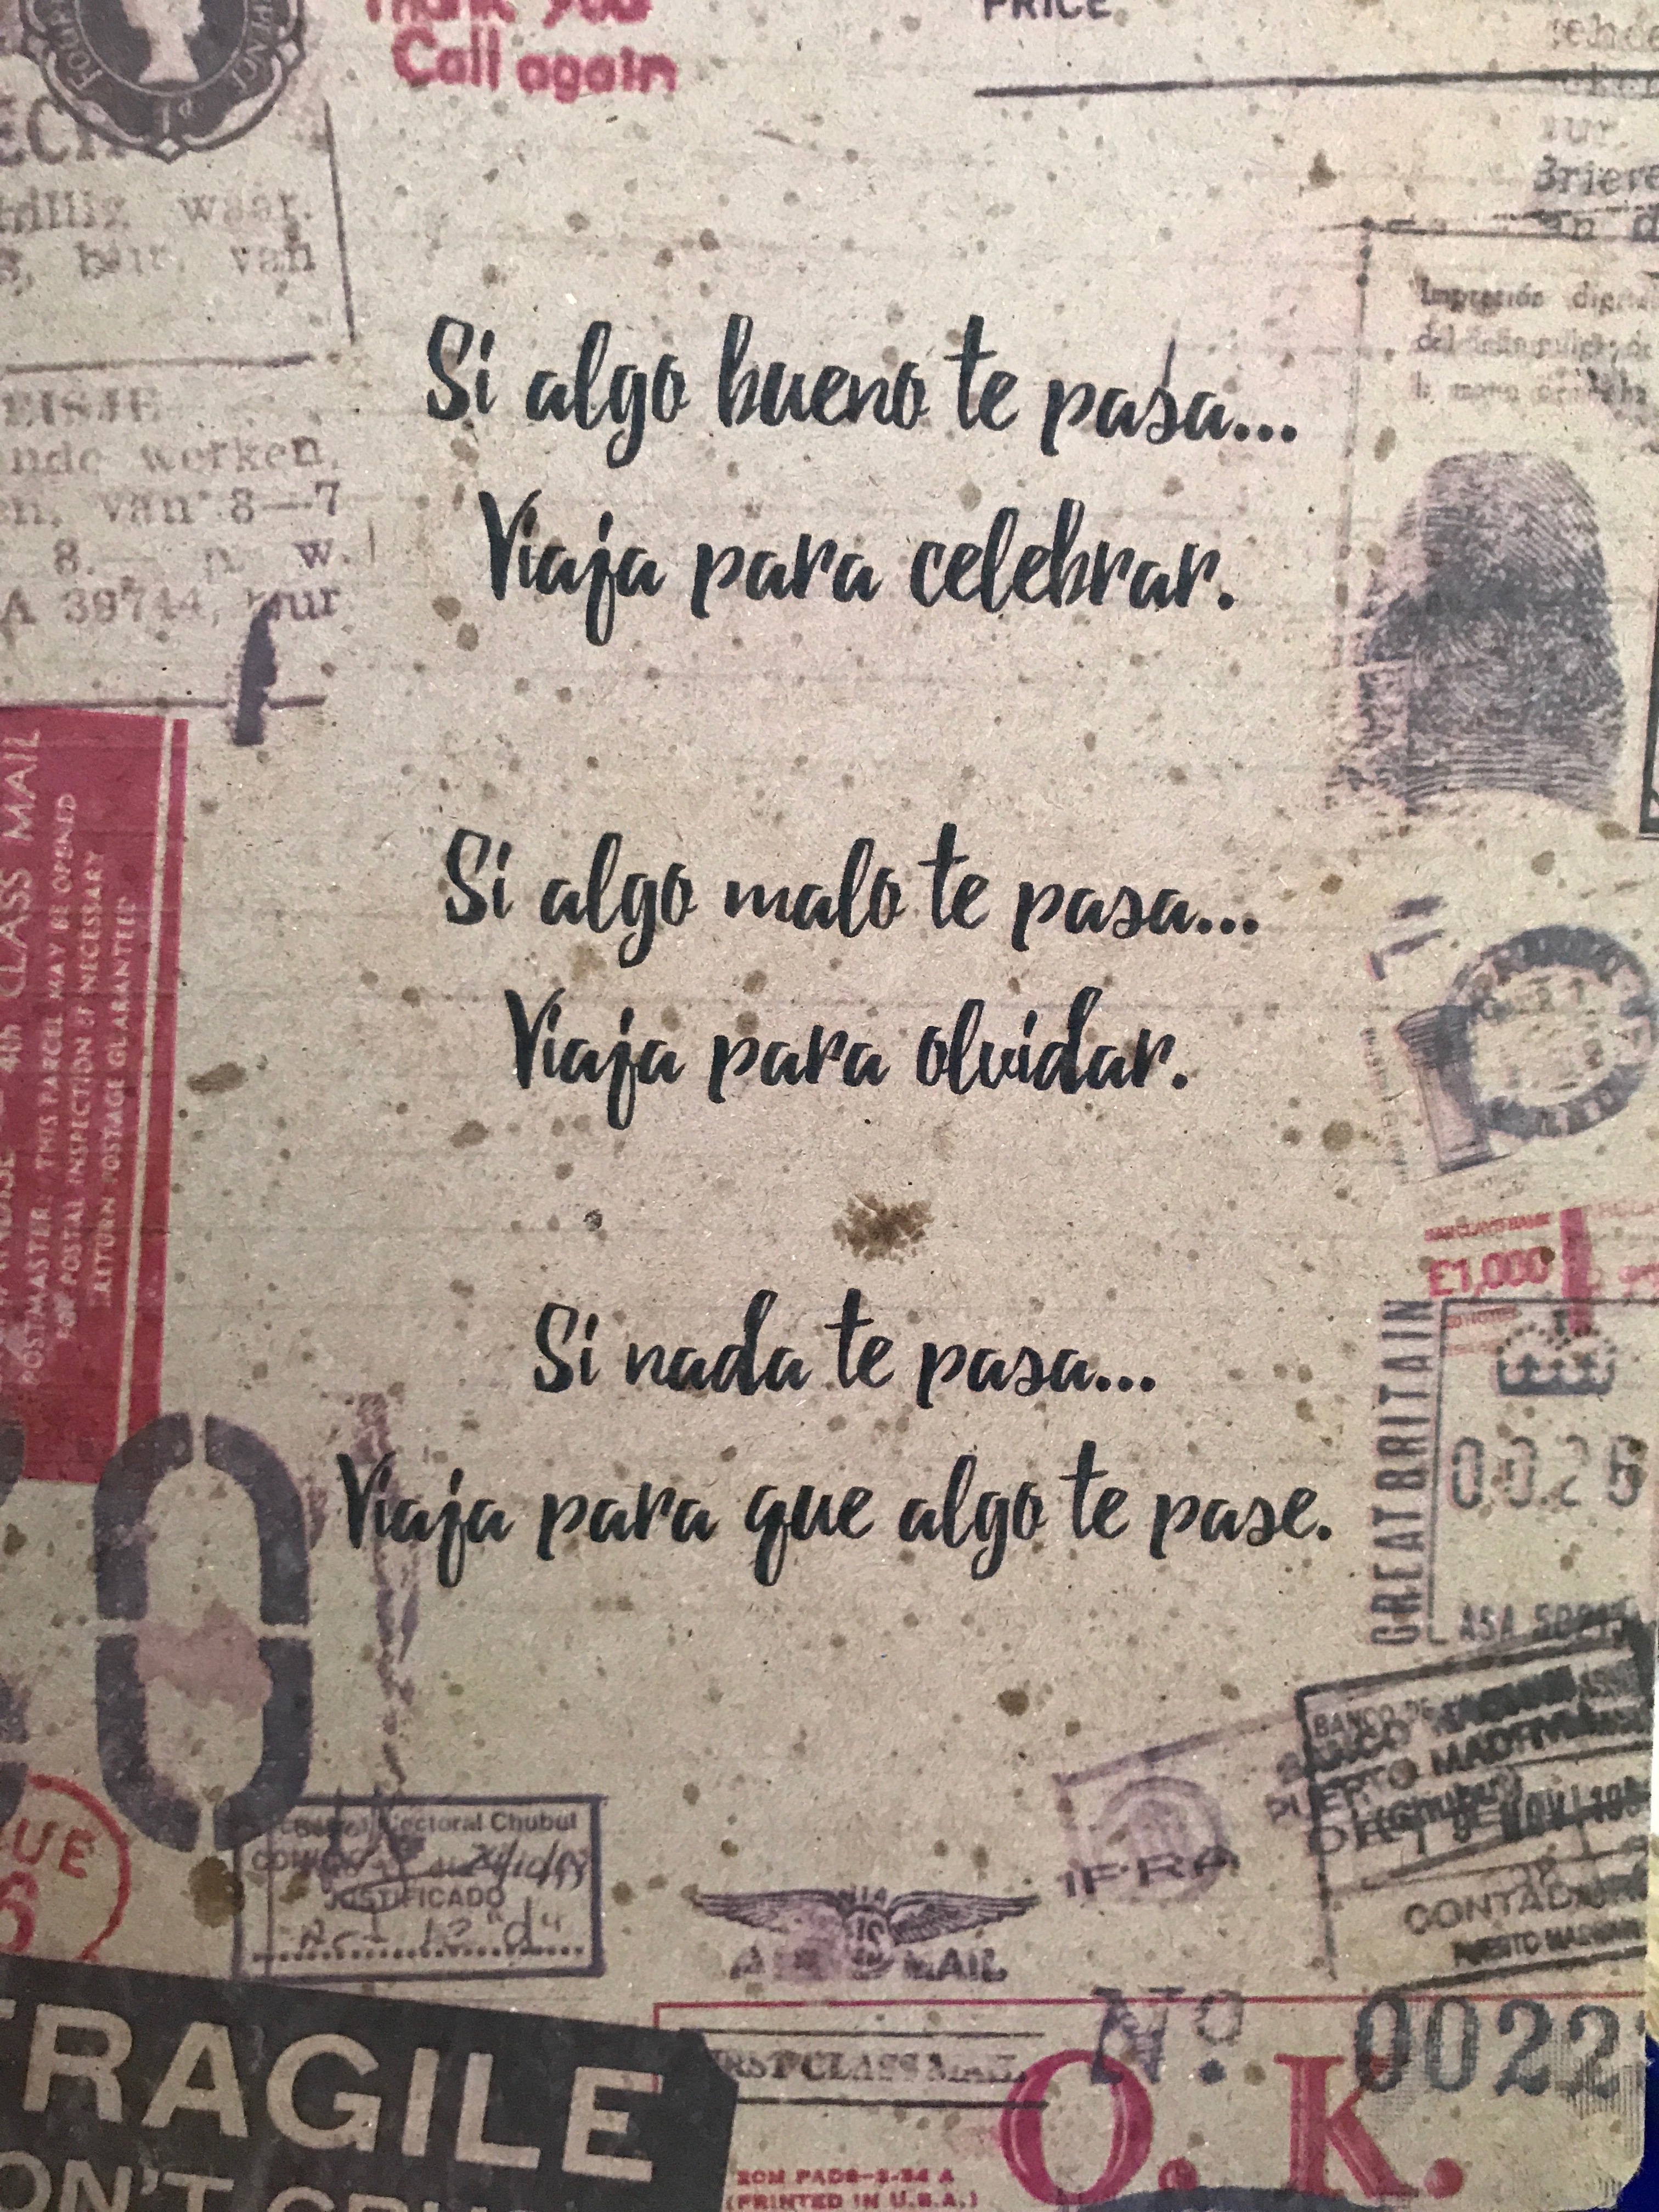 Call again
PRICE
Si algo bueno te pasa...
Viaja para celebrar.
Si algo malo te pasa...
Viaja para olvidar.
Si nada te pasa...
Viaja para que algo te pase.
waar.
van
werken,
van 8—7
8.— w.
A 39744,
4th CLASS MAIL
POSTMASTER: THIS PARCEL MAY BE OPENED
FOR POSTAL INSPECTION IF NECESSARY
RETURN POSTAGE GUARANTEED
Impresión
£1,000
GREAT BRITAIN
0026
ASA
BANCO DE
PUERTO MADRYN
(Chubut)
NOV
CONTADURIA
IFRA
Chubut
JUSTIFICADO
Art 12 "d"
AIR MAIL
No. 0022
FRAGILE
FIRST CLASS MAIL
O. K.
(PRINTED IN U.S.A.)